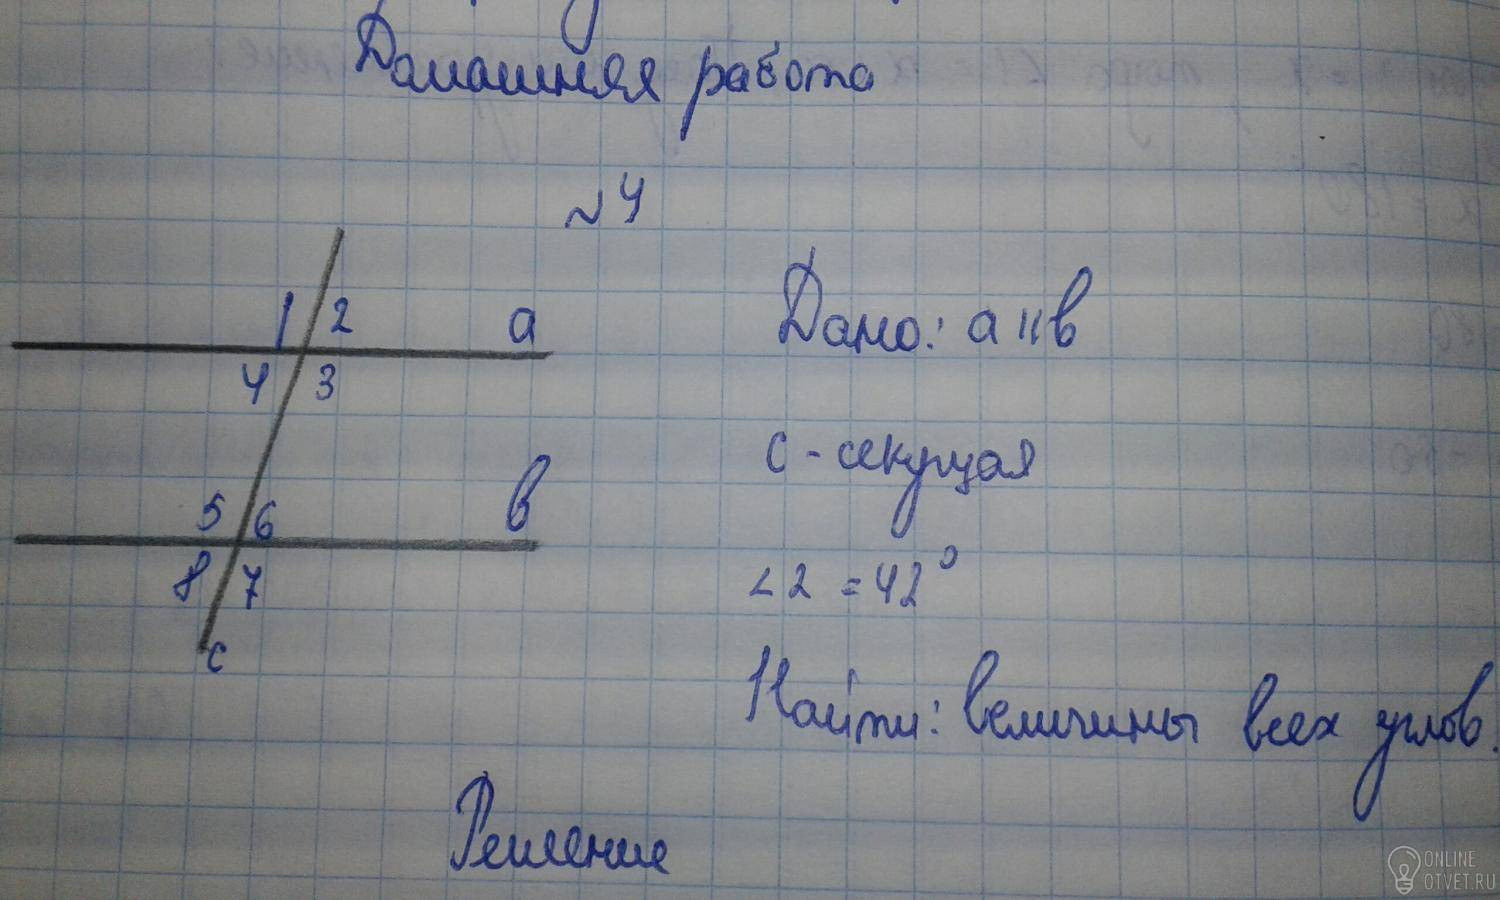 Домашняя работа
№4
1 2 a
4 3
5 6 в
8 7
c
Дано: a || в
c - секущая
∠2 = 42°
Найти: величины всех углов.
Решение
ONLINE
OTVET.RU